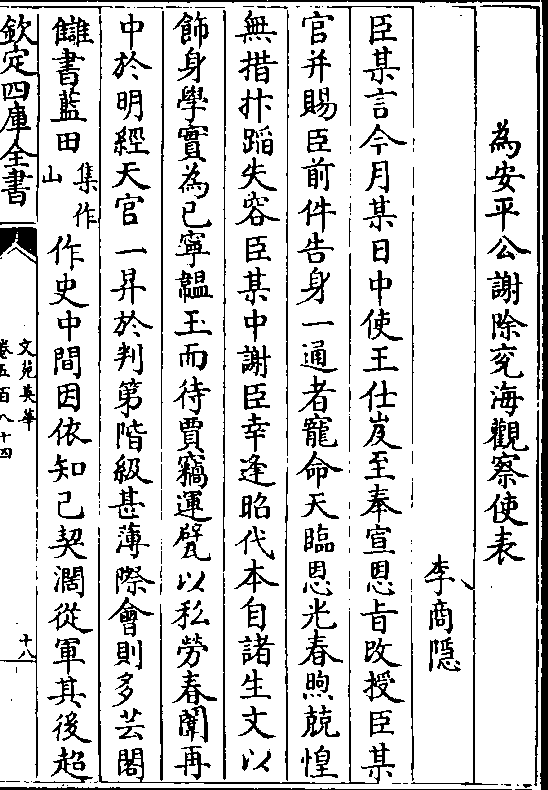 為安平公謝除兖海觀察使表
李商隱
臣某言今月某日中使王仕岌至奉宣恩㫖改授臣某
官并賜臣前件告身一通者寵命天臨恩光春煦兢惶
無措抃蹈失容臣某中謝臣幸逢昭代本自諸生文以
飾身學實為己寧韞玉而待賈竊運甓以私勞春闈再
中於明經天官一昇於判第階級甚薄際會則多芸閣
讎書藍田集作山作史中間因依知己契濶從軍其後超
欽定四庫全書
文苑英華
卷五百八十四
十八